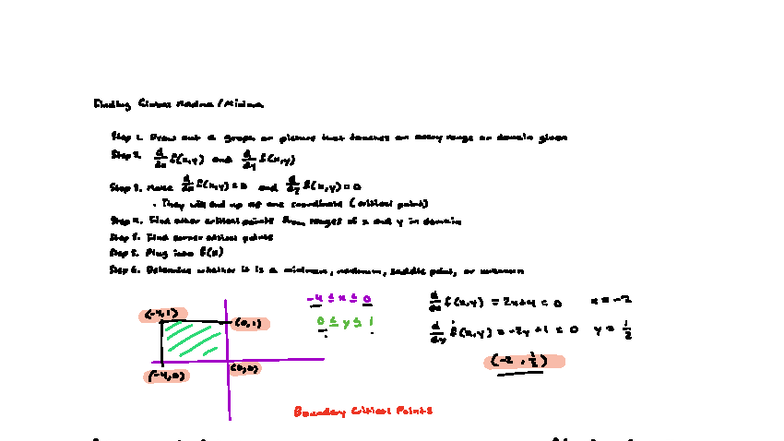 Finding Global Maxima / Minima
Step 1. Draw out a graph or picture that touches on every range or domain given
Step 2. d/dx f(x,y) and d/dy f(x,y)
Step 3. Make d/dx f(x,y) = 0 and d/dy f(x,y) = 0
· They will end up as one coordinate (critical point)
Step 4. Find other critical points from ranges of x and y in domain
Step 5. Find corner critical points
Step 5. Plug into f(x)
Step 6. Determine whether it is a minimum, maximum, saddle point, or unknown
(-4,1)
(0,1)
(-4,0)
(0,0)
-4 ≤ x ≤ 0
0 ≤ y ≤ 1
d/dx f(x,y) = 2x+4 = 0 x = -2
d/dy f(x,y) = -2y + 1 = 0 y = 1/2
(-2, 1/2)
Boundary Critical Points